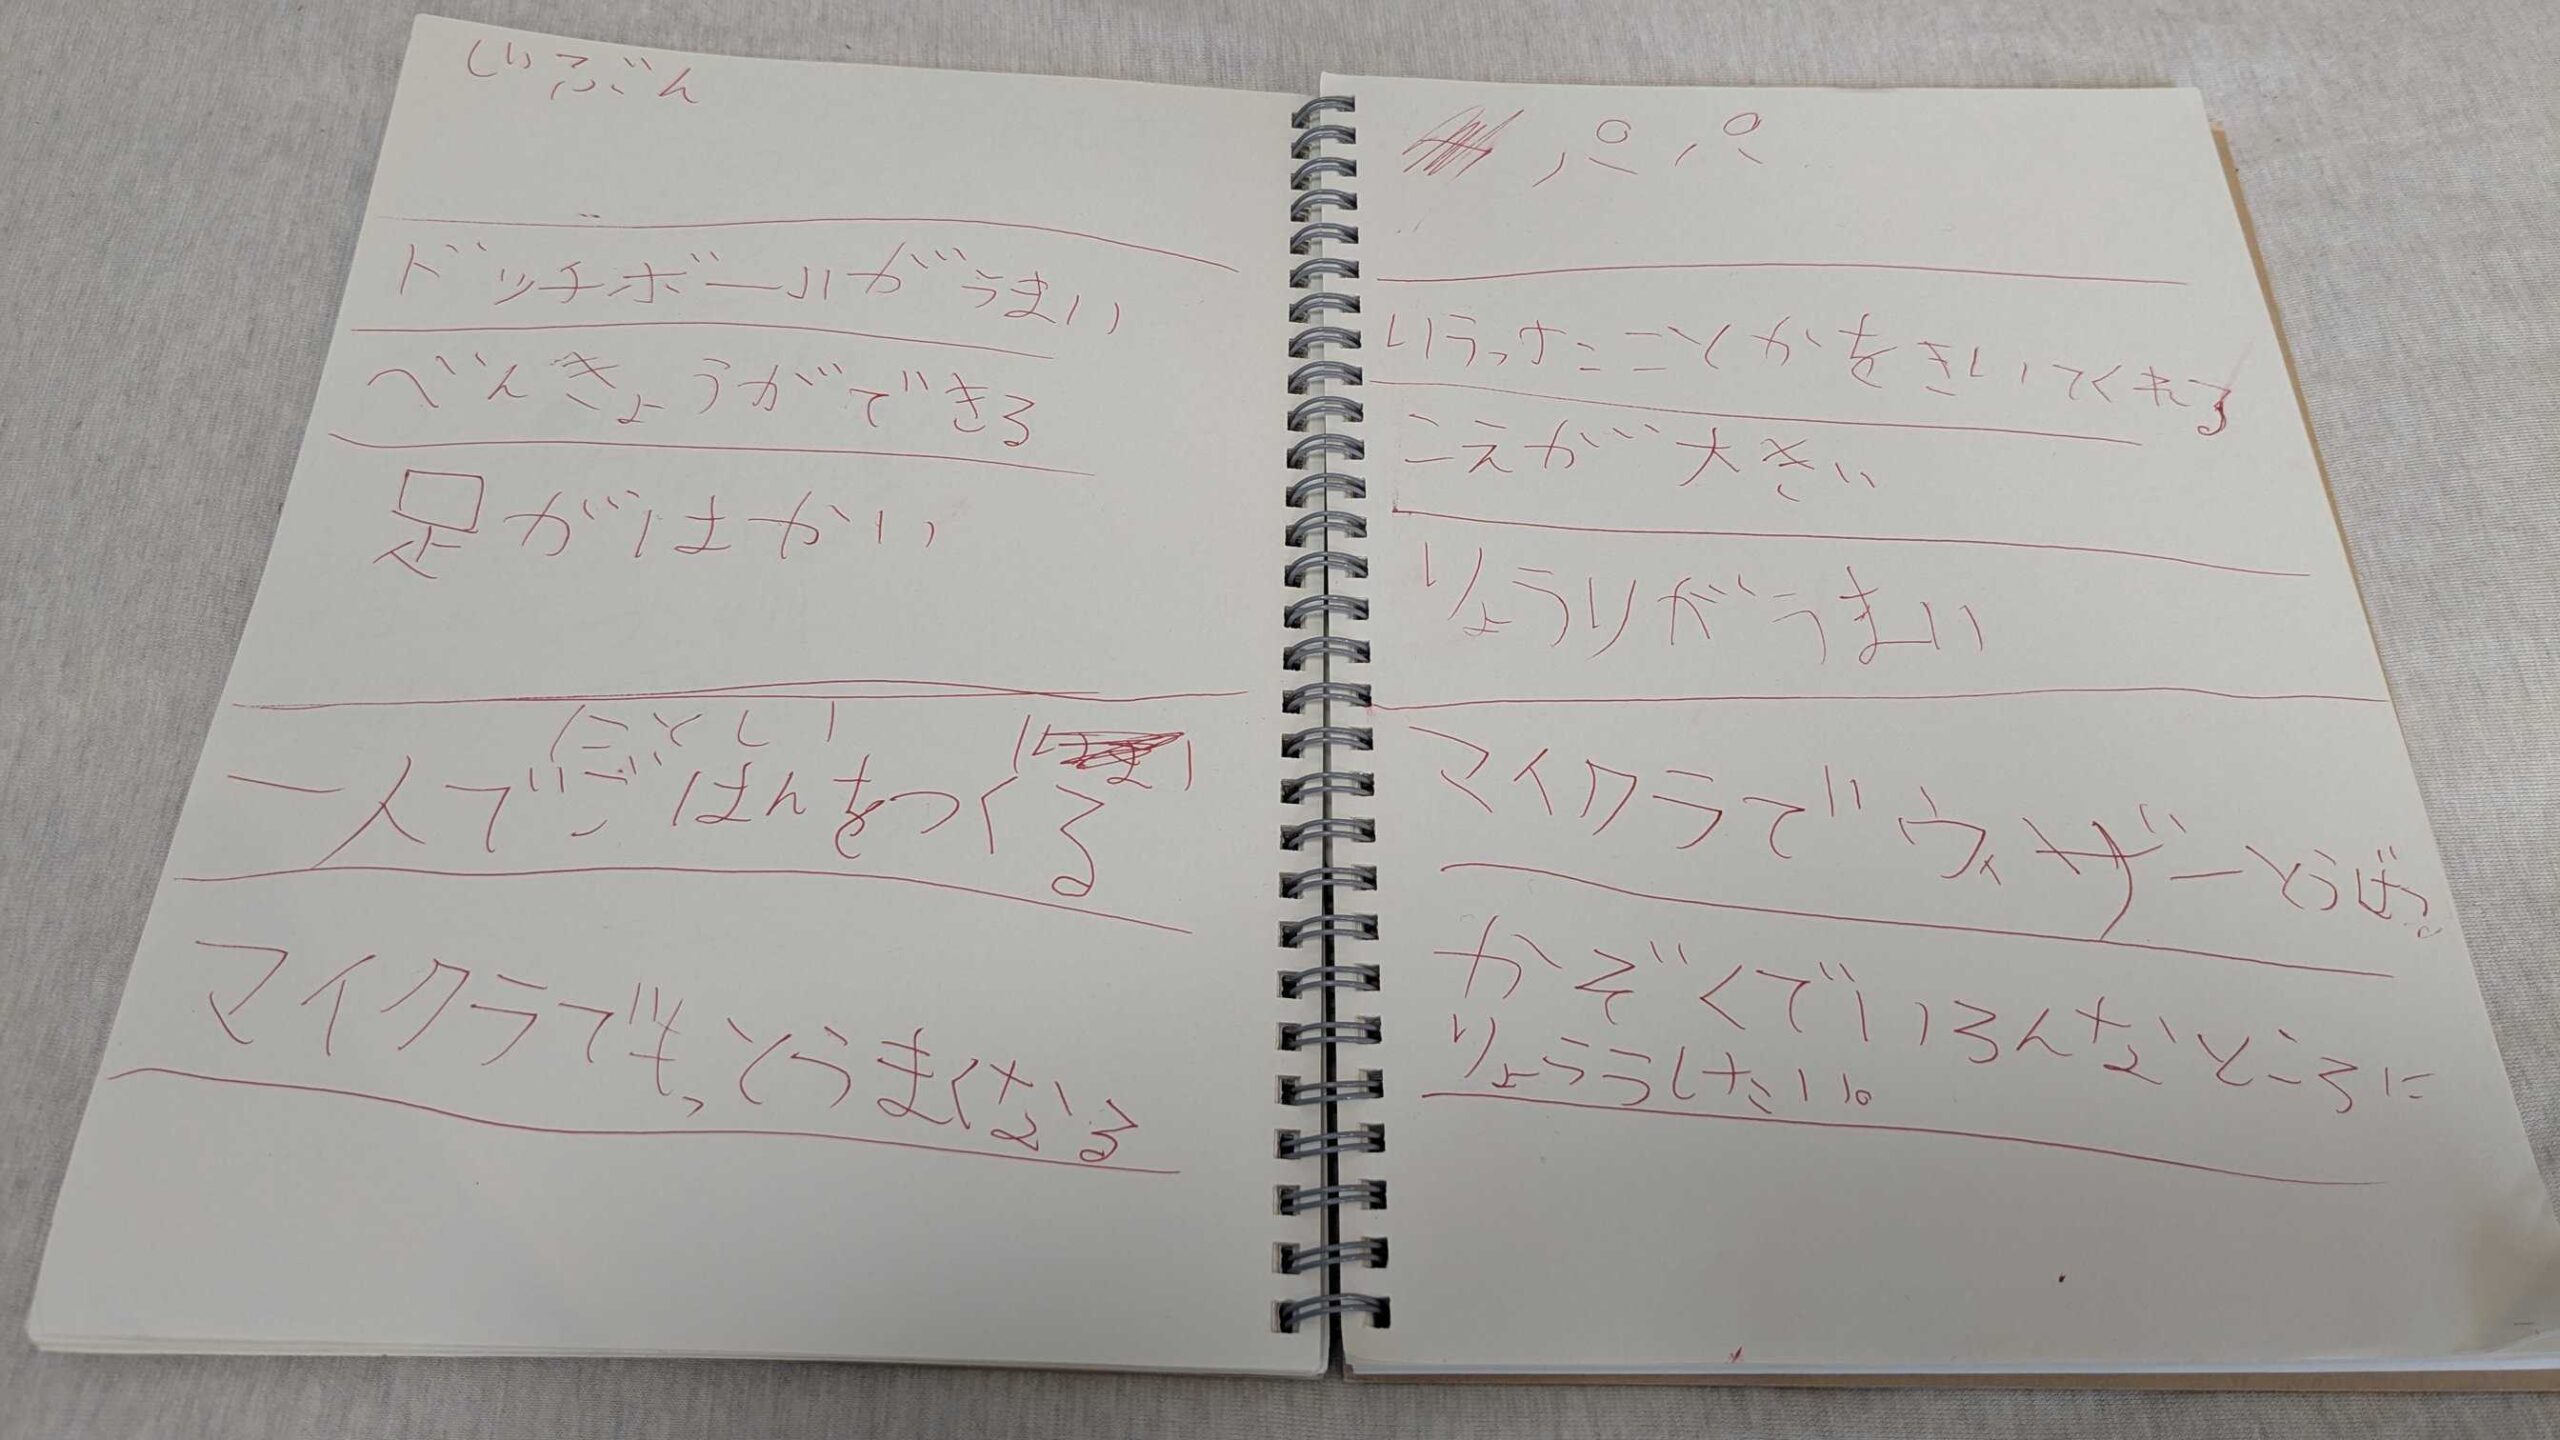 じぶん
ドッチボールがうまい
べんきょうができる
足がはかい
ことしい
一人でごはんをつくる
マイクラでもっとうまくなる
パパ
いうったことかをきいてくれる
こえが大きい
りょうりがうまい
マイクラでウィザーとうばつ。
かぞくでいろんなところに
りょううしたい。